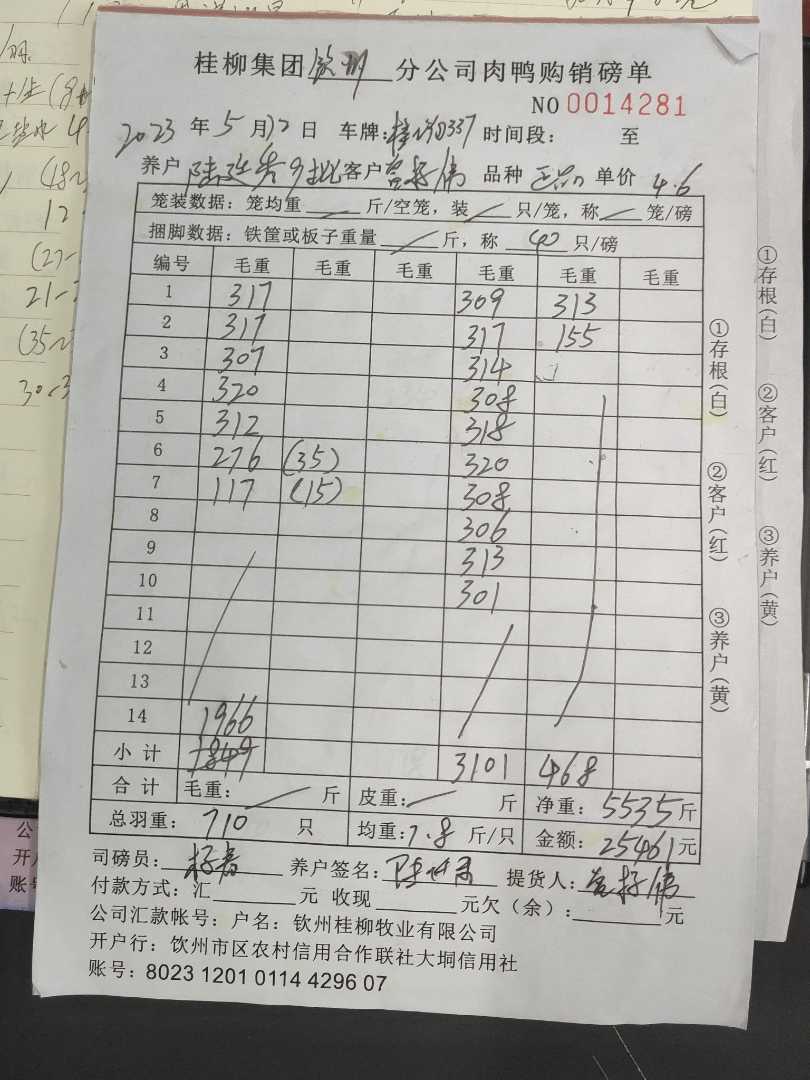 桂柳集团钦州分公司肉鸭购销磅单
NO 0014281
2023年5月12日 车牌:桂 337 时间段: 至
养户 陆 批客户 伟 品种 正品 单价 4.6
笼装数据：笼均重 斤/空笼，装 只/笼，称 笼/磅
捆脚数据：铁筐或板子重量 斤，称 40 只/磅
编号 毛重 毛重 毛重 毛重 毛重 毛重
1 317 309 313
2 317 317 155
3 307 314
4 320 308
5 312 318
6 276 (35) 320
7 117 (15) 308
8 306
9 313
10 301
11
12
13
14 1966
小计 1849 3101 468
合计 毛重： 斤 皮重： 斤 净重：5535斤
总羽重：710 只 均重：7.8 斤/只 金额：25461元
司磅员： 养户签名： 提货人： 伟
付款方式：汇 元 收现 元欠（余）： 元
公司汇款帐号：户名：钦州桂柳牧业有限公司
开户行：饮州市区农村信用合作联社大垌信用社
账号：8023 1201 0114 4296 07
①存根(白) ②客户(红) ③养户(黄)
①存根(白) ②客户(红) ③养户(黄)
公
开户
账号